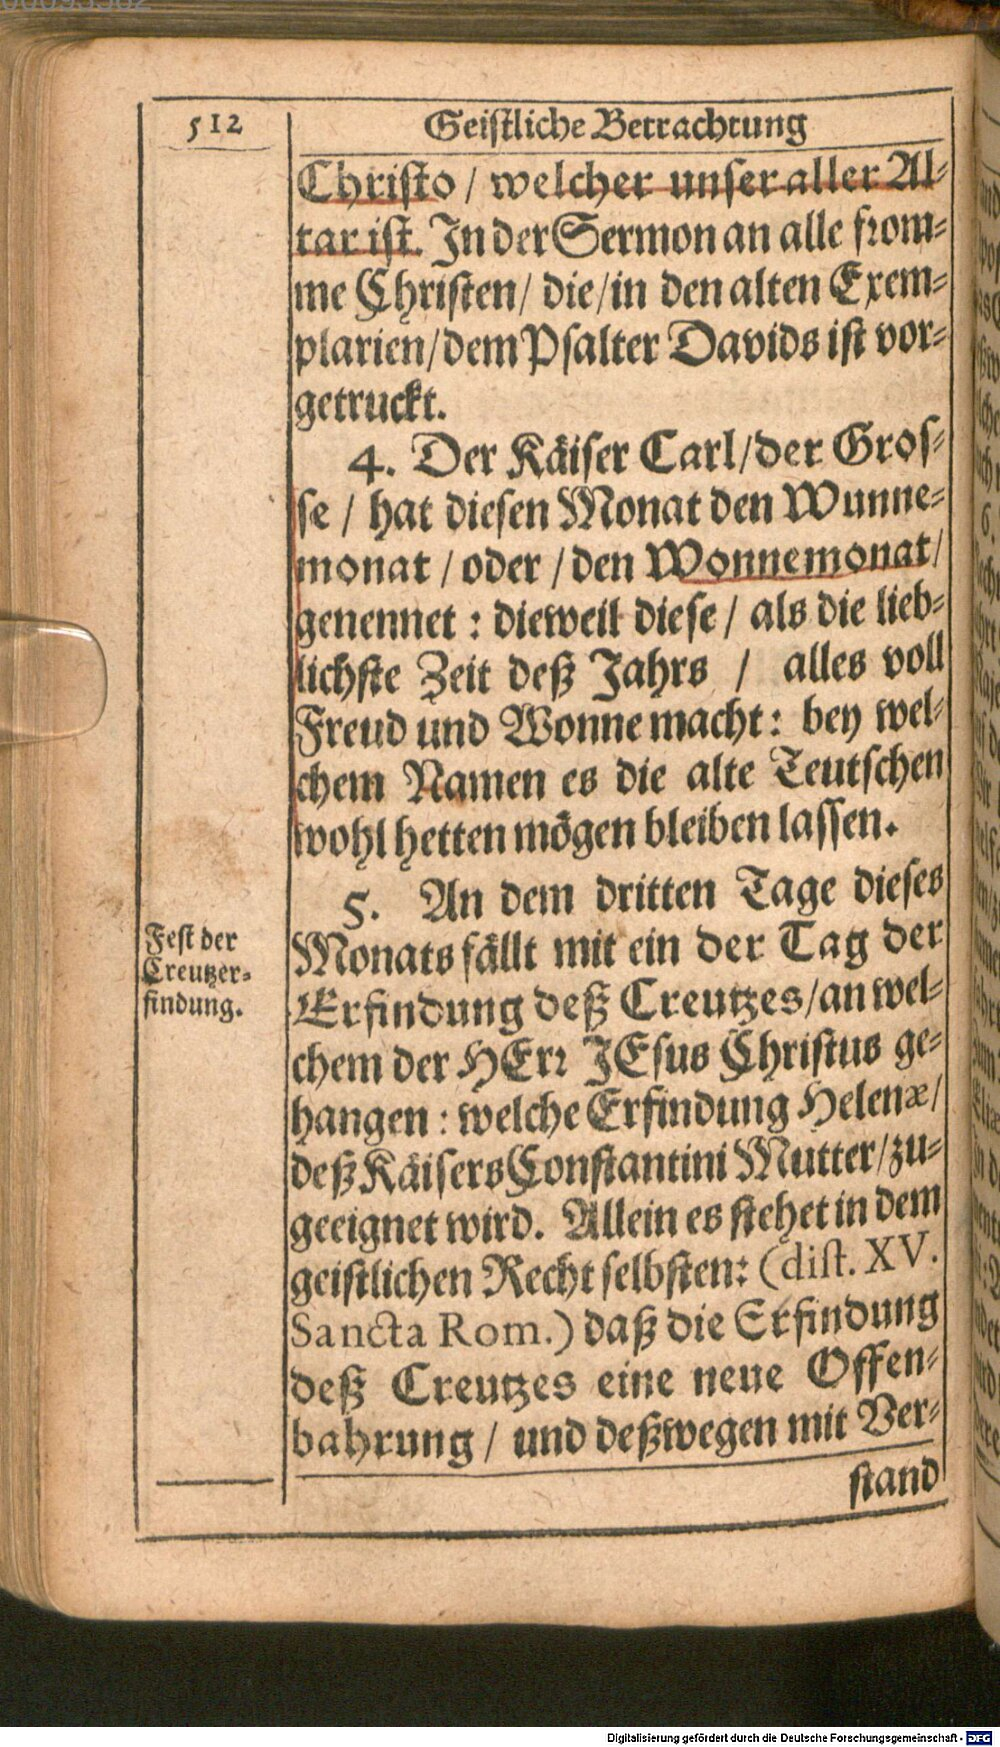 512
Geistliche Betrachtung
Christo / welcher unser aller Al-
tar ist. In der Sermon an alle from-
me Christen / die / in den alten Exem-
plarien / dem Psalter Davids ist vor-
getruckt.
4. Der Käiser Carl / der Gros-
se / hat diesen Monat den Wunne-
monat / oder / den Wonnemonat /
genennet : dieweil diese / als die lieb-
lichste Zeit deß Jahrs / alles voll
Freud und Wonne macht : bey wel-
chem Namen es die alte Teutschen
wohl hetten mögen bleiben lassen.
5. An dem dritten Tage dieses
Monats fällt mit ein der Tag der
Erfindung deß Creutzes / an wel-
chem der HErr JEsus Christus ge-
hangen : welche Erfindung Helenæ /
deß Käisers Constantini Mutter / zu-
geeignet wird. Allein es stehet in dem
geistlichen Recht selbsten: (dist. XV.
Sancta Rom.) daß die Erfindung
deß Creutzes eine neue Offen-
bahrung / und deßwegen mit Ver-
stand
Fest der
Creutzer-
findung.
Digitalisierung gefördert durch die Deutsche Forschungsgemeinschaft - DFG